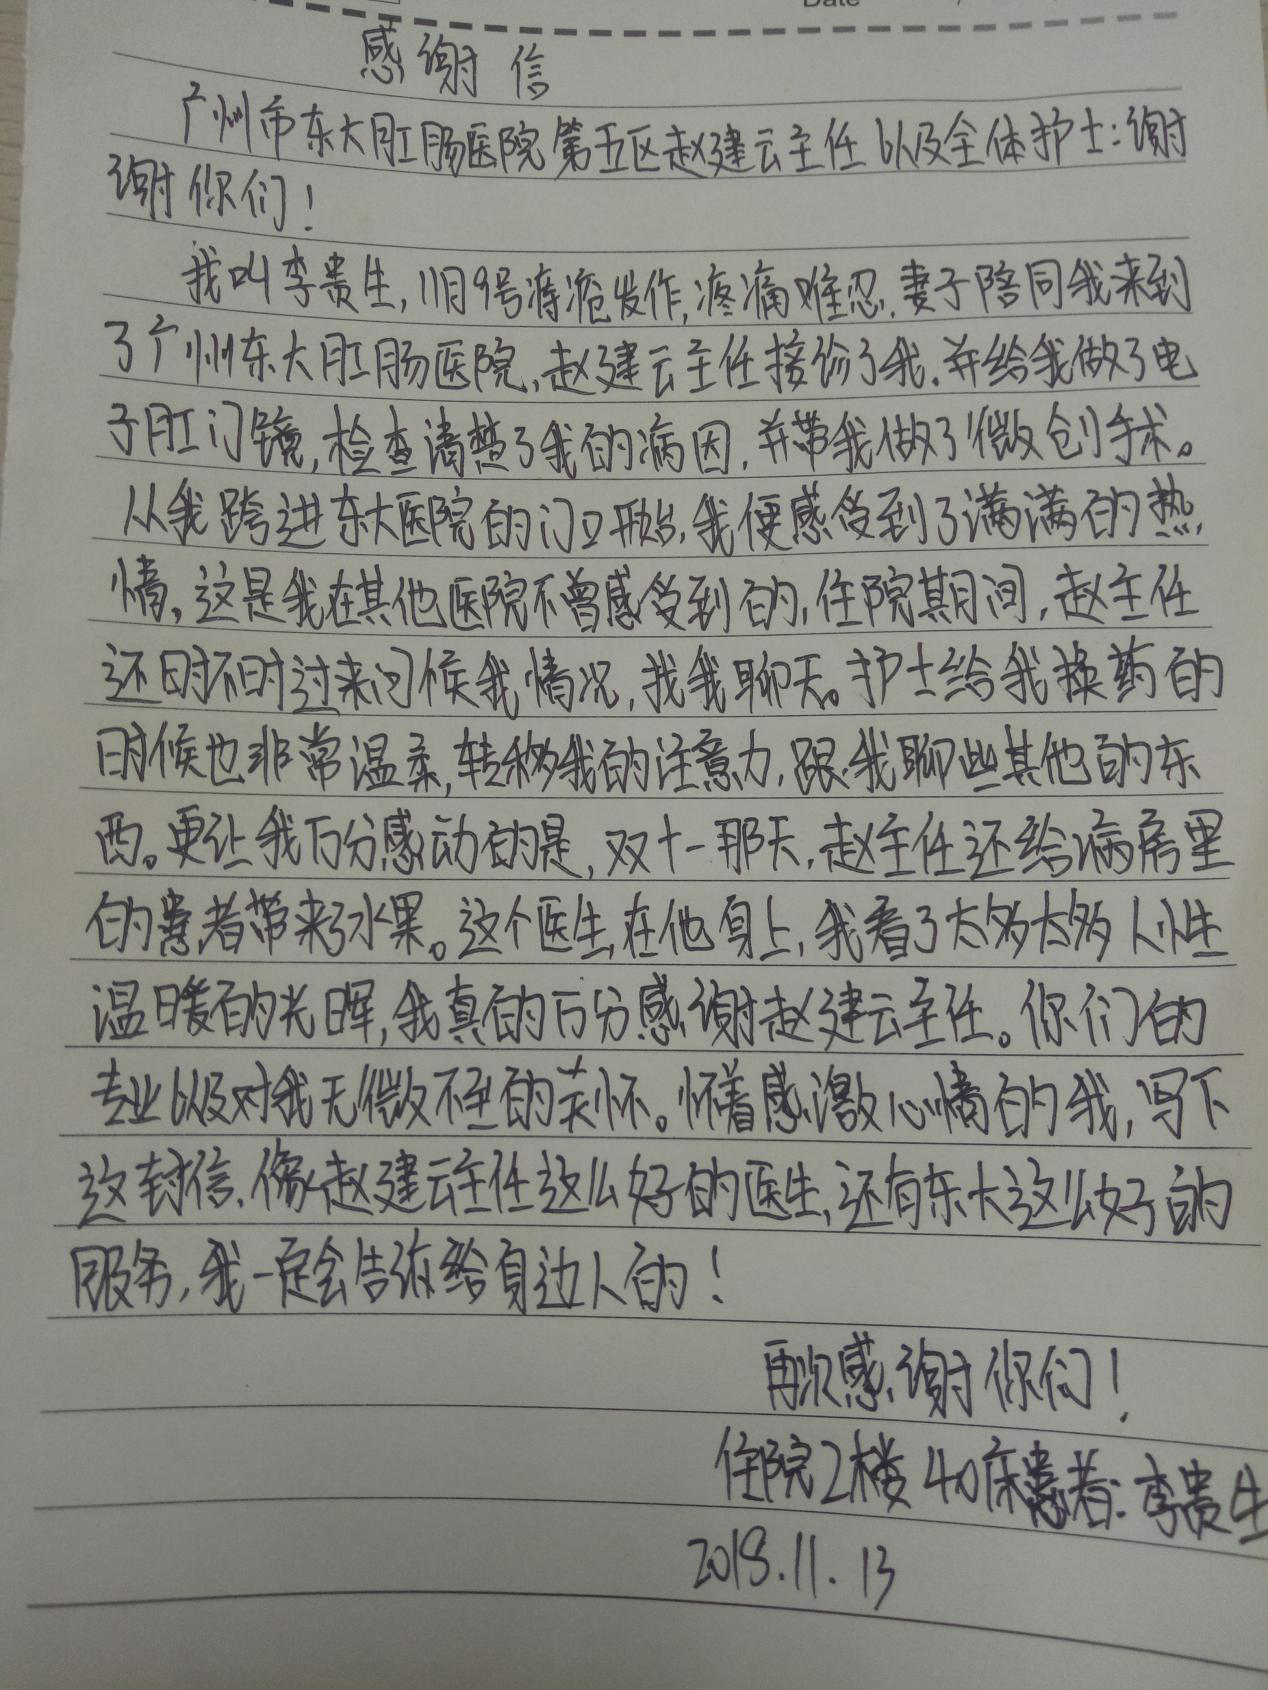 Date
感谢信
广州市东大肛肠医院第五区赵建云主任以及全体护士：谢
谢你们！
我叫李贵生，11月9号痔疮发作，疼痛难忍，妻子陪同我来到
了广州东大肛肠医院，赵建云主任接诊了我，并给我做了电
子肛门镜，检查清楚了我的病因，并带我做了微创手术。
从我跨进东大医院的门口开始，我便感受到了满满的热
情，这是我在其他医院不曾感受到的，住院期间，赵主任
还时不时过来问候我情况，找我聊天。护士给我换药的
时候也非常温柔，转移我的注意力，跟我聊些其他的东
西。更让我万分感动的是，双十一那天，赵主任还给病房里
的患者带来了水果。这个医生，在他身上，我看了太多太多人性
温暖的光晖，我真的万分感谢赵建云主任。你们的
专业以及对我无微不至的关怀。怀着感激心情的我，写下
这封信，像赵建云主任这么好的医生，还有东大这么好的
服务，我一定会告诉给身边人的！
再次感谢你们！
住院2楼40床患者：李贵生
2018.11.13